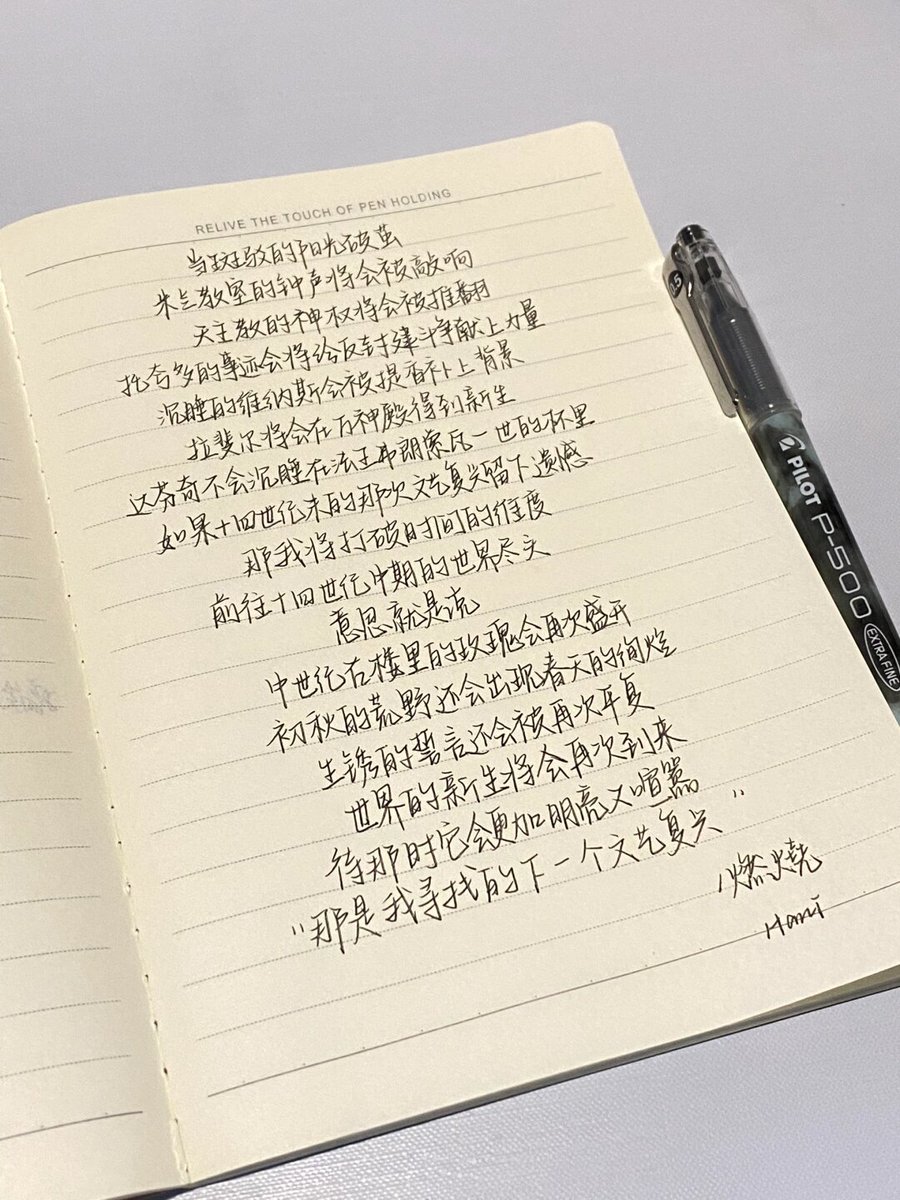 RELIVE THE TOUCH OF PEN HOLDING
当斑驳的阳光破茧
米兰教室的钟声将会被敲响
天主教的神权将会被推翻
托夸多的事迹会将给反封建斗争献上力量
沉睡的维纳斯会被提香补上背景
拉斐尔将会在万神殿得到新生
达芬奇不会沉睡在法王弗朗索瓦一世的怀里
如果十四世纪末的那次文艺复兴留下遗憾
那我将打破时间的维度
前往十四世纪中期的世界尽头
意思就是说
中世纪古楼里的玫瑰会再次盛开
初秋的荒野还会出现春天的绚烂
生锈的誓言还会被再次平复
世界的新生将会再次到来
待那时它会更加明亮又喧嚣
"那是我寻找的下一个文艺复兴"
燃燒
Hami
0.5
PILOT P-500 EXTRA FINE